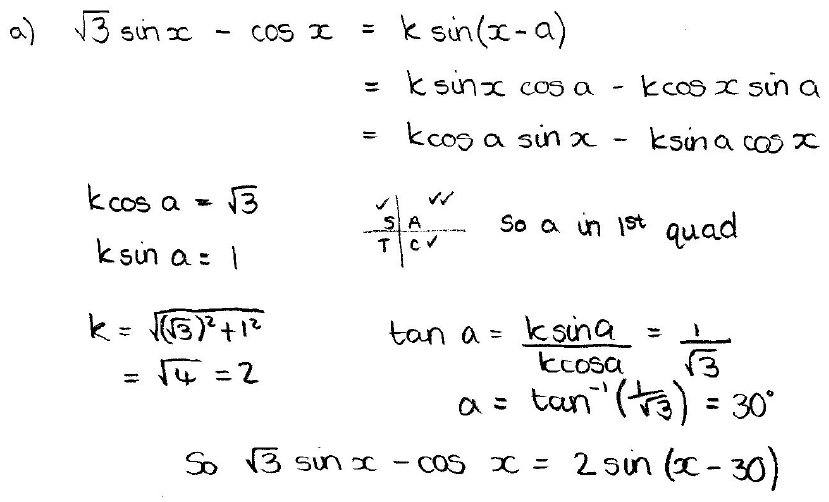 a) √3 sin x - cos x = k sin(x-a)
= k sin x cos a - k cos x sin a
= k cos a sin x - k sin a cos x
k cos a = √3
k sin a = 1
✓ ✓✓
S A
T C ✓
So a in 1st quad
k = √((√3)²+1²)
= √4 = 2
tan a = k sin a / k cos a = 1/√3
a = tan⁻¹(1/√3) = 30°
So √3 sin x - cos x = 2 sin (x - 30)